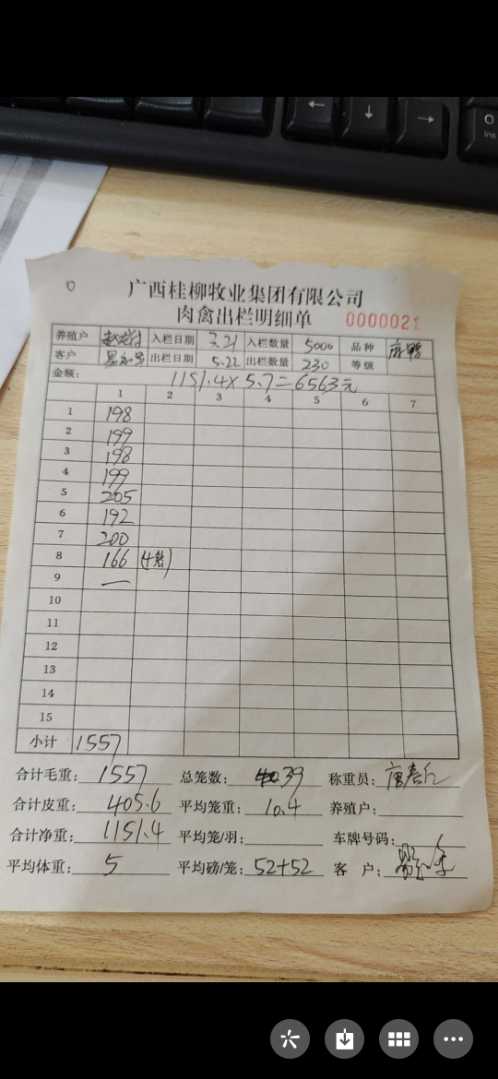 广西桂柳牧业集团有限公司
肉禽出栏明细单 0000021
养殖户 入栏日期 3.21 入栏数量 5000 品种 麻鸭
客户 出栏日期 5.22 出栏数量 230 等级
金额: 1151.4×5.7=6563元
1 2 3 4 5 6 7
1 198
2 199
3 198
4 199
5 205
6 192
7 200
8 166 (4笼)
9 —
10
11
12
13
14
15
小计 1557
合计毛重: 1557 总笼数: 39 称重员:
合计皮重: 405.6 平均笼重: 10.4 养殖户:
合计净重: 1151.4 平均笼/羽: 车牌号码:
平均体重: 5 平均磅/笼: 52+52 客 户: